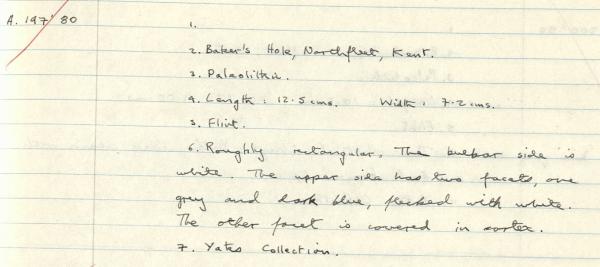 A. 197' 80
1.
2. Baker's Hole, Northfleet, Kent.
3. Palaolithic.
4. Length: 12.5 cms. Width: 7.2 cms.
5. Flint.
6. Roughily rectangular. The bulbar side is
white. The upper side has two facets, one
grey and dark blue, flecked with white.
The other facet is covered in cortex.
7. Yates Collection.